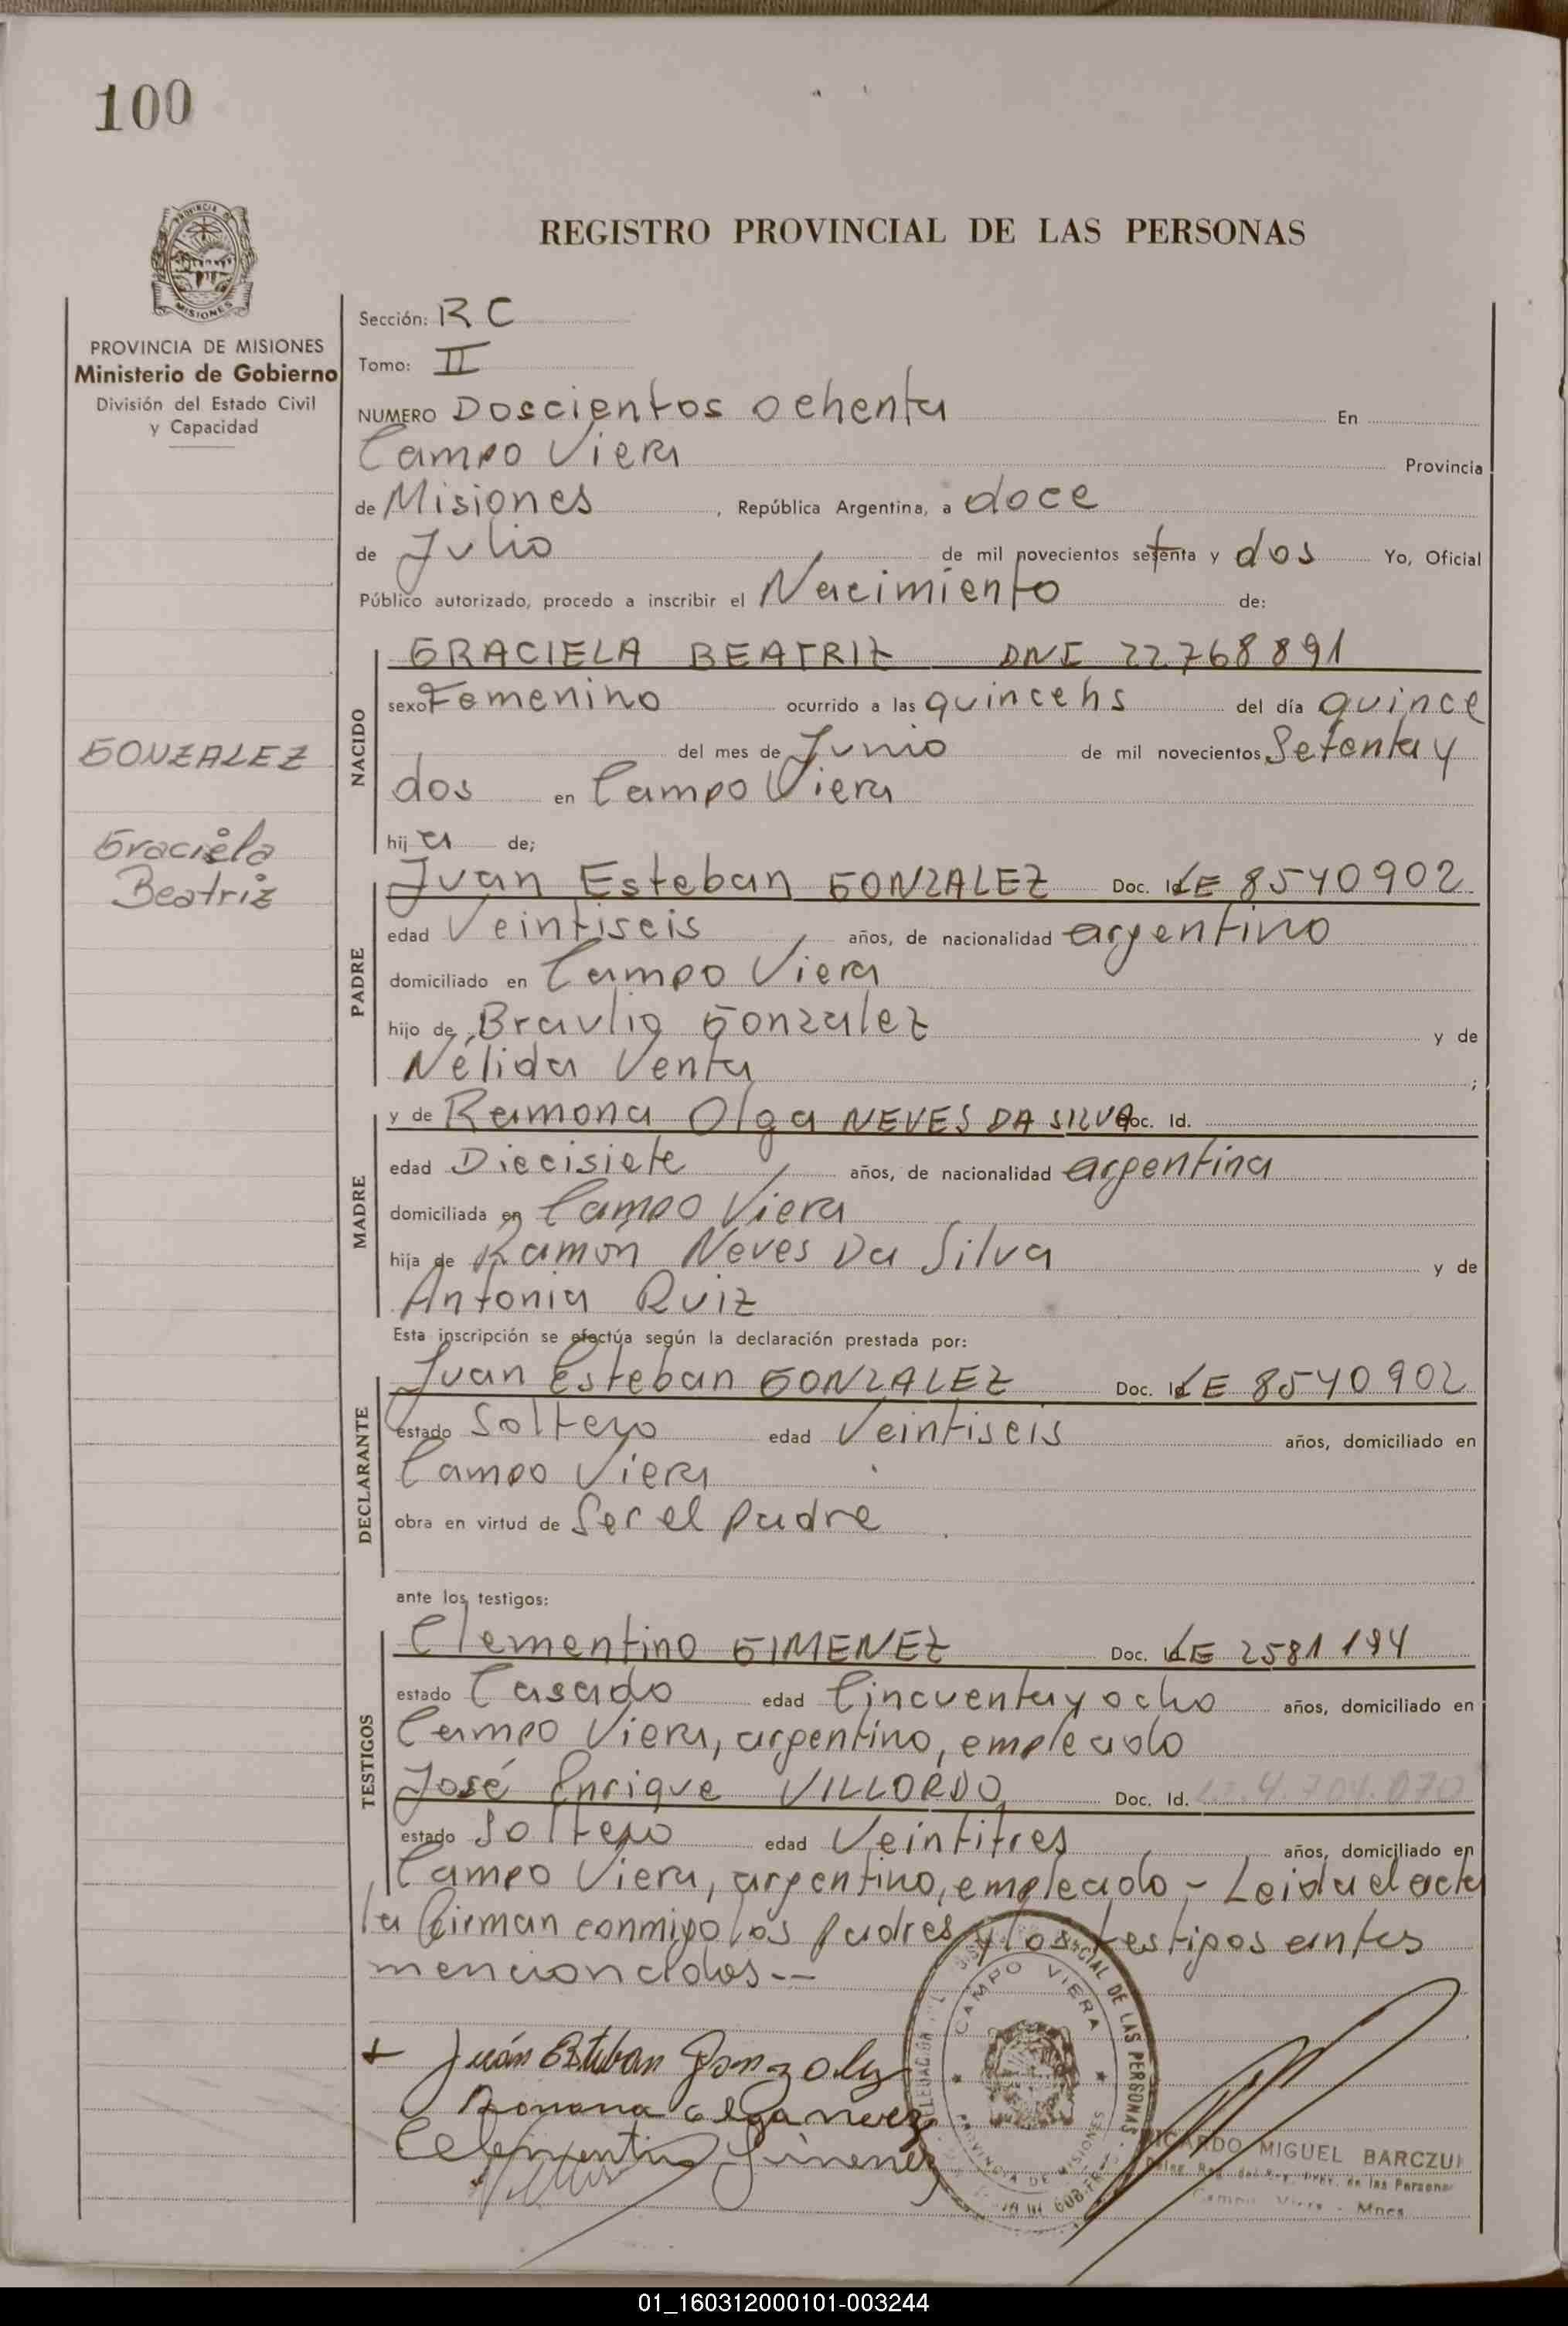 100
PROVINCIA DE
MISIONES
REGISTRO PROVINCIAL DE LAS PERSONAS
PROVINCIA DE MISIONES
Ministerio de Gobierno
División del Estado Civil
y Capacidad
GONZALEZ
Graciela
Beatriz
Sección: RC
Tomo: II
NUMERO Doscientos ochenta En
Campo Viera Provincia
de Misiones, República Argentina, a doce
de Julio de mil novecientos setenta y dos Yo, Oficial
Público autorizado, procedo a inscribir el Nacimiento de:
NACIDO
GRACIELA BEATRIZ DNI 22768891
sexo Femenino ocurrido a las quince hs del día quince
del mes de Junio de mil novecientos Setenta y
dos en Campo Viera
hija de;
PADRE
Juan Esteban GONZALEZ Doc. Id. LE 8540902
edad Veintiseis años, de nacionalidad argentino
domiciliado en Campo Viera
hijo de Braulio Gonzalez y de
Nélida Venta;
MADRE
y de Ramona Olga NEVES DA SILVA Doc. Id.
edad Diecisiete años, de nacionalidad argentina
domiciliada en Campo Viera
hija de Ramón Neves Da Silva y de
Antonia Ruiz
Esta inscripción se efectúa según la declaración prestada por:
DECLARANTE
Juan Esteban GONZALEZ Doc. Id. LE 8540902
estado Soltero edad Veintiseis años, domiciliado en
Campo Viera
obra en virtud de Ser el padre
ante los testigos:
TESTIGOS
Clementino GIMENEZ Doc. Id. LE 2581194
estado Casado edad Cincuenta y ocho años, domiciliado en
Campo Viera, argentino, empleado
José Enrique VILLORDO Doc. Id. 4.704.070
estado Soltero edad Veintitres años, domiciliado en
Campo Viera, argentino, empleado - Leida el acta
la firman conmigo los padres y los testigos antes
mencionados.--
Juán Esteban Gonzalez
Ramona Olga Neves
Celementino Jimenez
CAMPO VIERA
PROVINCIA DE MISIONES
DE LAS PERSONAS
RICARDO MIGUEL BARCZUK
de las Personas
Campo Viera - Mnes
01_160312000101-003244